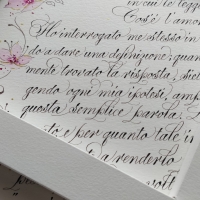 in cui to legg
Cos'è l'amor
Ho interrogato me stesso in
do a dare una definizione, quan
mente trovato la risposta, sie
gendo ogni mia ipotesi, amp
questa semplice parola. L
to e per quanto tale i
Da renderlo
volt